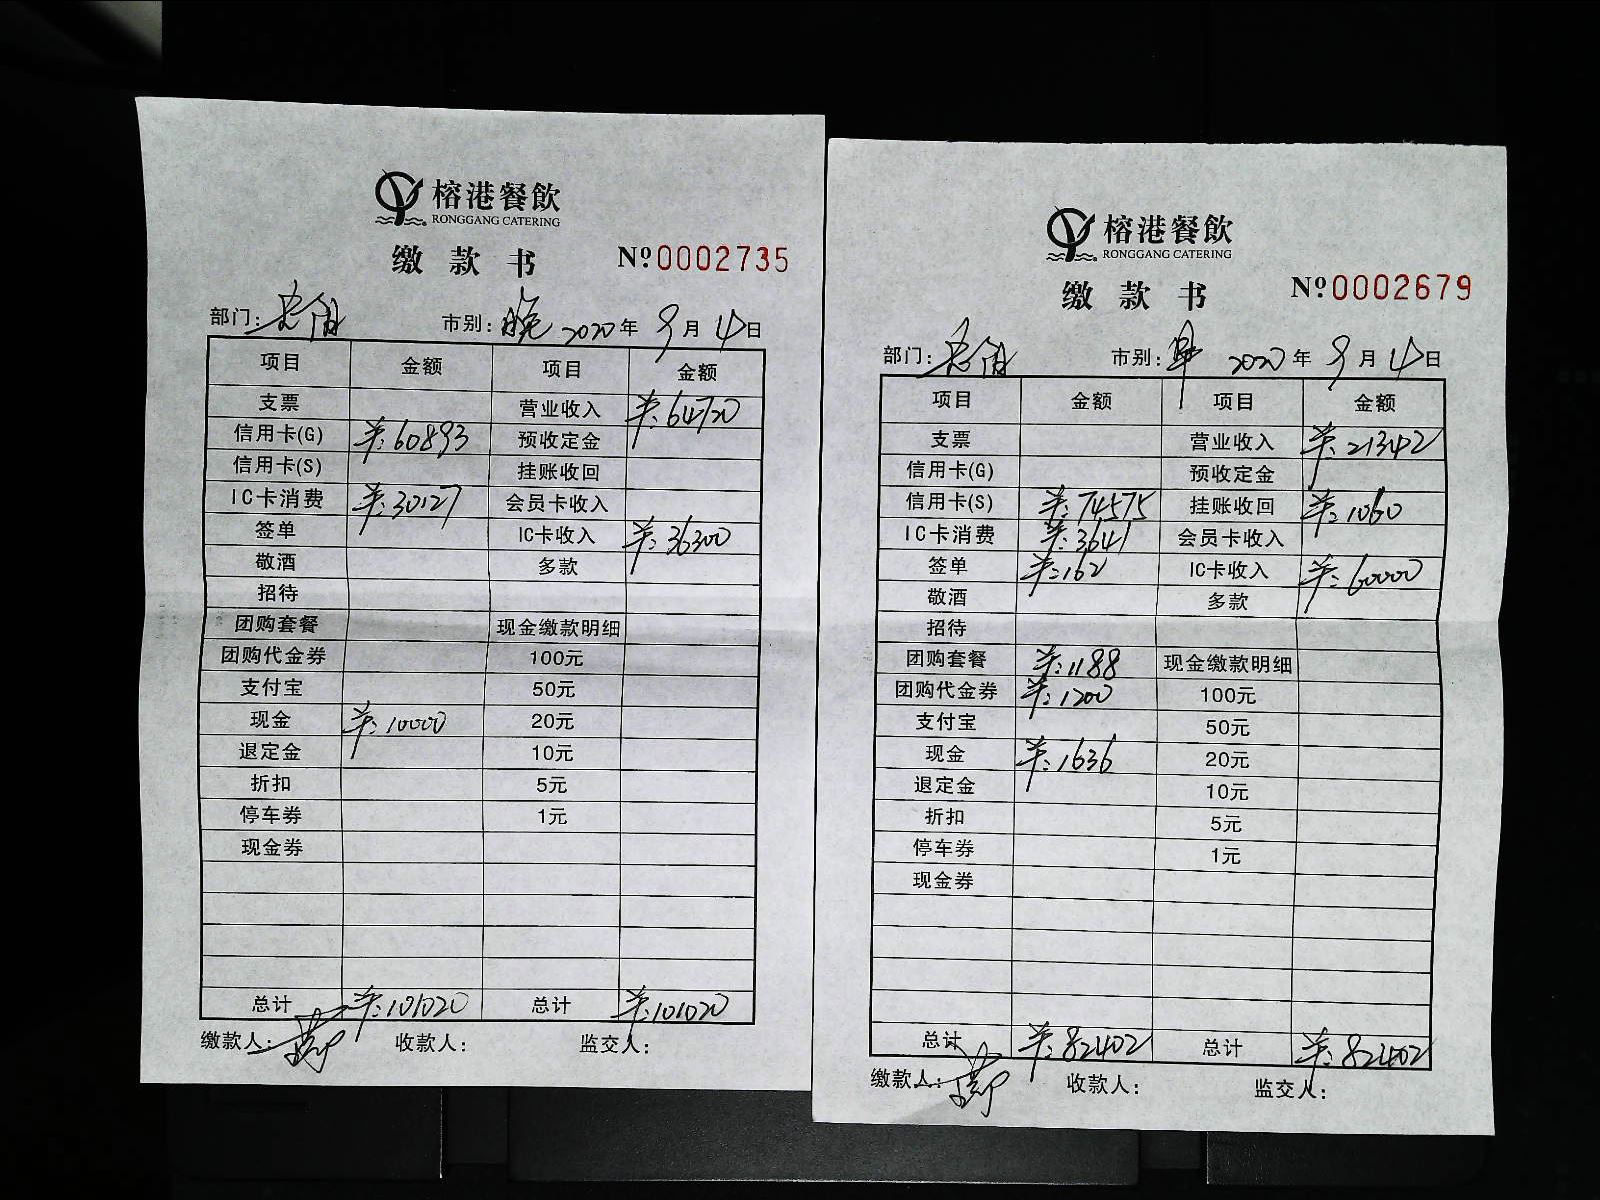 榕港餐飲
RONGGANG CATERING
缴款书 №0002735
部门: 市别: 晚 2020年9月4日
项目 金额 项目 金额
支票 营业收入 羊:64720
信用卡(G) 羊:60893 预收定金
信用卡(S) 挂账收回
IC卡消费 羊:30127 会员卡收入
签单 IC卡收入 羊:36300
敬酒 多款
招待
团购套餐 现金缴款明细
团购代金券 100元
支付宝 50元
现金 羊:10000 20元
退定金 10元
折扣 5元
停车券 1元
现金券
总计 羊:101020 总计 羊:101020
缴款人: 收款人: 监交人:
榕港餐飲
RONGGANG CATERING
缴款书 №0002679
部门: 市别: 早 2020年9月4日
项目 金额 项目 金额
支票 营业收入 羊:21342
信用卡(G) 预收定金
信用卡(S) 羊:74575 挂账收回 羊:1060
IC卡消费 羊:3641 会员卡收入
签单 羊:162 IC卡收入 羊:60000
敬酒 多款
招待
团购套餐 羊:1188 现金缴款明细
团购代金券 羊:1200 100元
支付宝 50元
现金 羊:1636 20元
退定金 10元
折扣 5元
停车券 1元
现金券
总计 羊:82402 总计 羊:82402
缴款人: 收款人: 监交人: